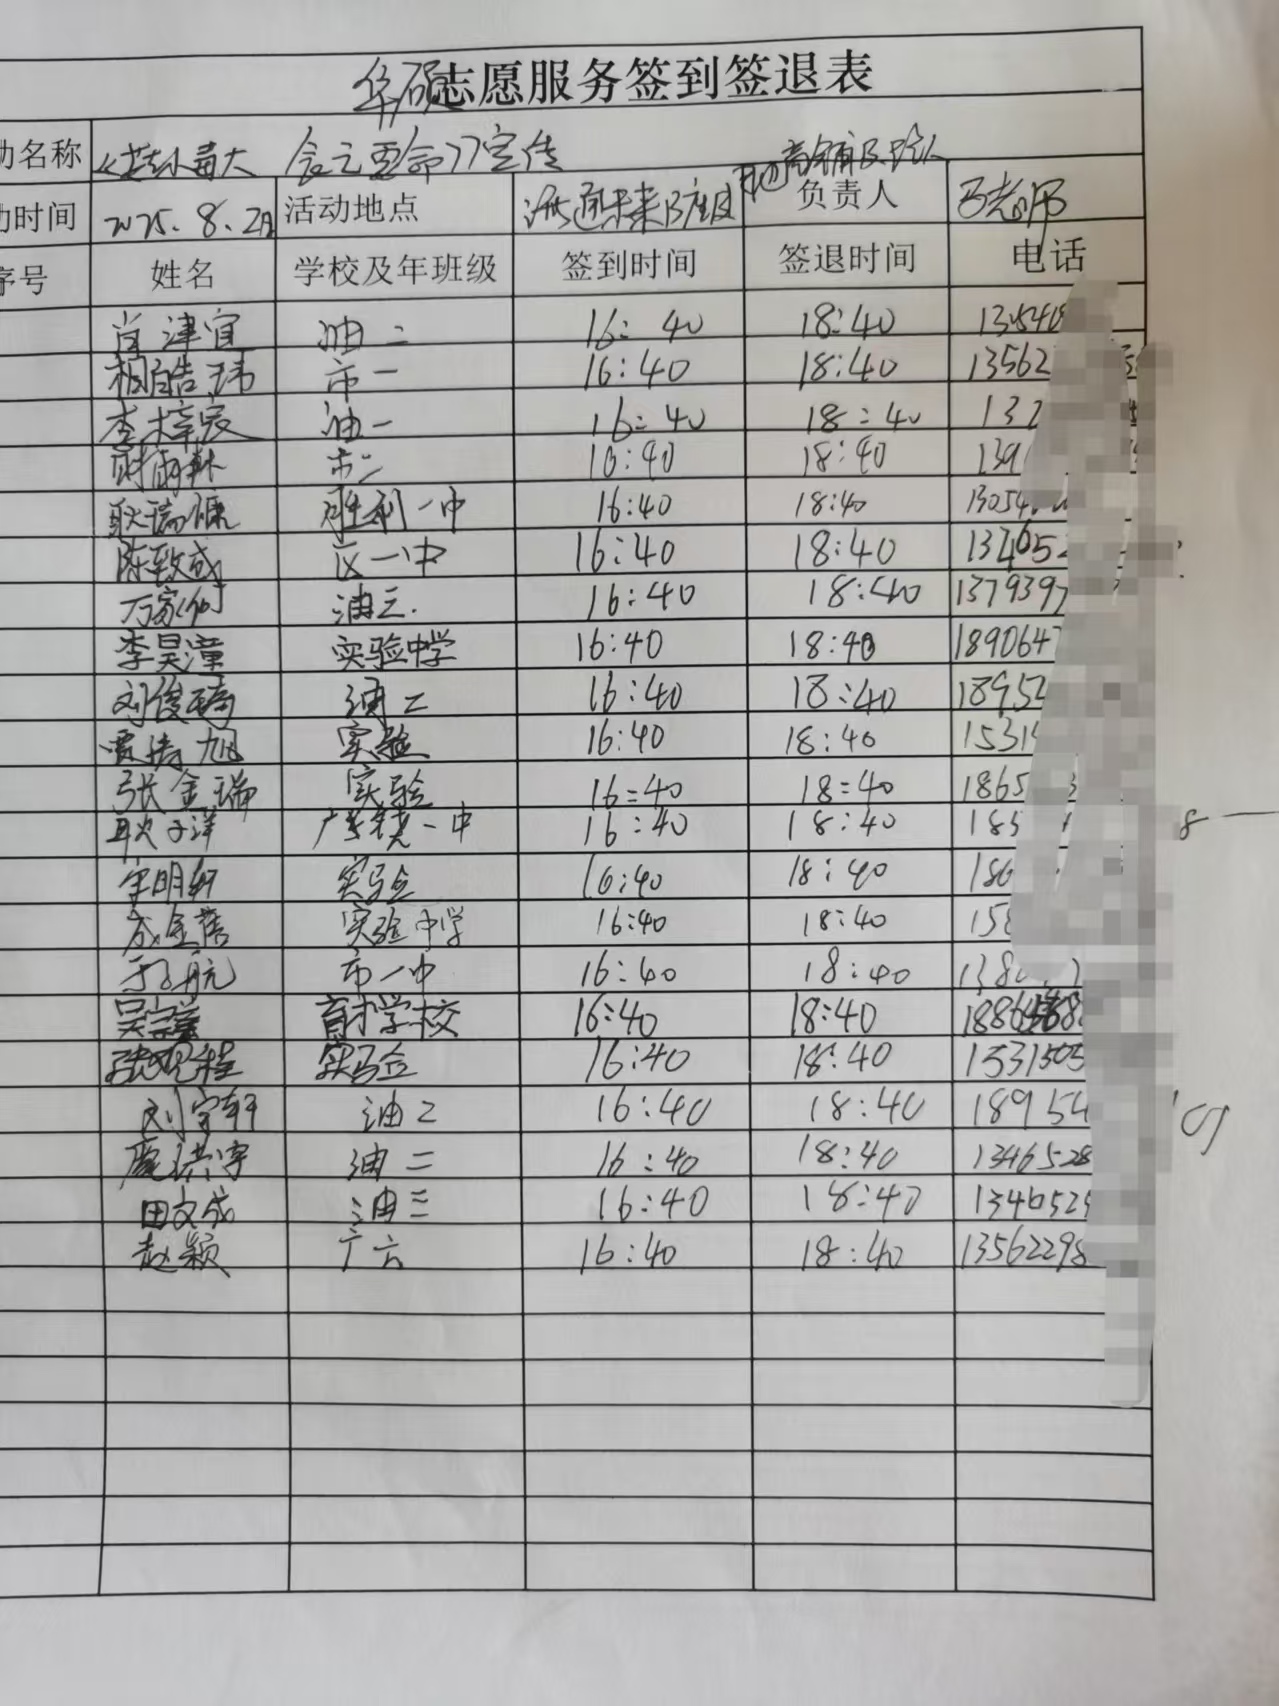 华硕志愿服务签到签退表
动名称 《芸小毒大 食之要命》宣传
动时间 2025.8.2日 活动地点 海通未来B座及周边商铺及路人 负责人 老师
序号 姓名 学校及年班级 签到时间 签退时间 电话
肖津宜 油二 16:40 18:40 13540
相皓玮 市一 16:40 18:40 13562
李梓宸 油一 16:40 18:40 132
市二 16:40 18:40 139
耿瑞 胜利一中 16:40 18:40 13054
陈致成 区一中 16:40 18:40 134652
万家 油三. 16:40 18:40 1379397
李昊潼 实验中学 16:40 18:40 1890647
刘俊 油二 16:40 18:40 18952
旭 实验 16:40 18:40 1531
张金瑞 实验 16:40 18:40 1865
耿子洋 广饶一中 16:40 18:40 185 8
宋明轩 实验 16:40 18:40 186
成金 实验中学 16:40 18:40 158
航 市一中 16:40 18:40 138
吴 育才学校 16:40 18:40
张 程 实验 16:40 18:40 1531503
刘宇轩 油二 16:40 18:40 18954
庞洪宇 油二 16:40 18:40 1346528
田文成 油三 16:40 18:40 1346529
赵颖 广六 16:40 18:40 13562298